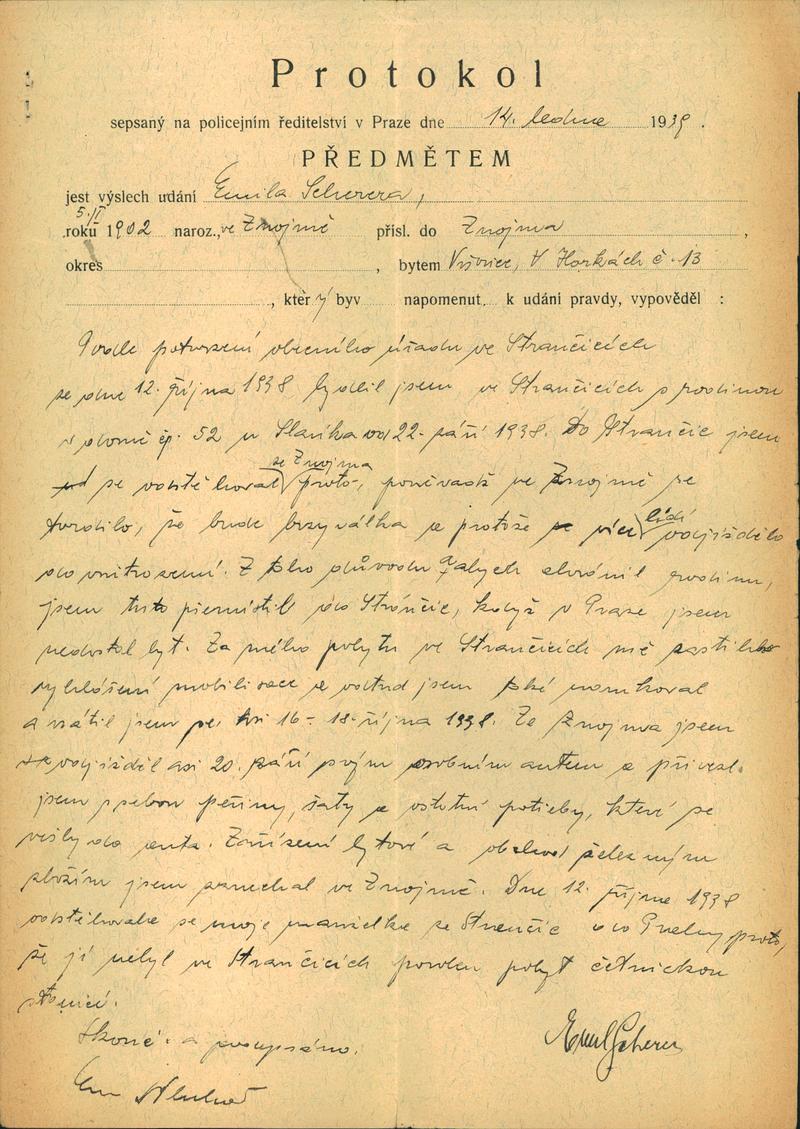 Protokol
sepsaný na policejním ředitelství v Praze dne 14. ledna 1939.
PŘEDMĚTEM
jest výslech udání Emila Scherera,
5./II.
roku 1902 naroz. ve Znojmě přísl. do Znojma,
okres , bytem Vršovice, V Horkách č. 13
, kter ý byv napomenut k udání pravdy, vypověděl :
Podle potvrzení obecního úřadu ve Strančicích
ze dne 12. října 1938 bydlil jsem ve Strančicích s rodinou
v domě čp. 52 u Slavíka od 22. září 1938. Do Strančic jsem
ze Znojma
se odstěhoval proto, poněvadž ve Znojmě se
lidí
tvrdilo, že bude brzy válka a protože více odjíždělo
do vnitrozemí. Z toho důvodu abych chránil rodinu,
jsem tuto přemístil do Strančic, když v Praze jsem
nedostal byt. Za mého pobytu ve Strančicích mě zastihlo
vyhlášení mobilisace a odtud jsem také narukoval
a vrátil jsem se asi 16 - 18. října 1938. Ze Znojma jsem
odjížděl asi 20. září svým osobním autem a přivezl
jsem s sebou peřiny, šaty a ostatní potřeby, které se
vešly do auta. Zařízení bytové a obchod železným
zbožím jsem zanechal ve Znojmě. Dne 12. října 1938
odstěhovala se moje manželka ze Strančic do Prahy proto,
že jí nebyl ve Strančicích povolen pobyt četnickou
stanicí.
Skonč. a podepsáno.
Emil Scherer